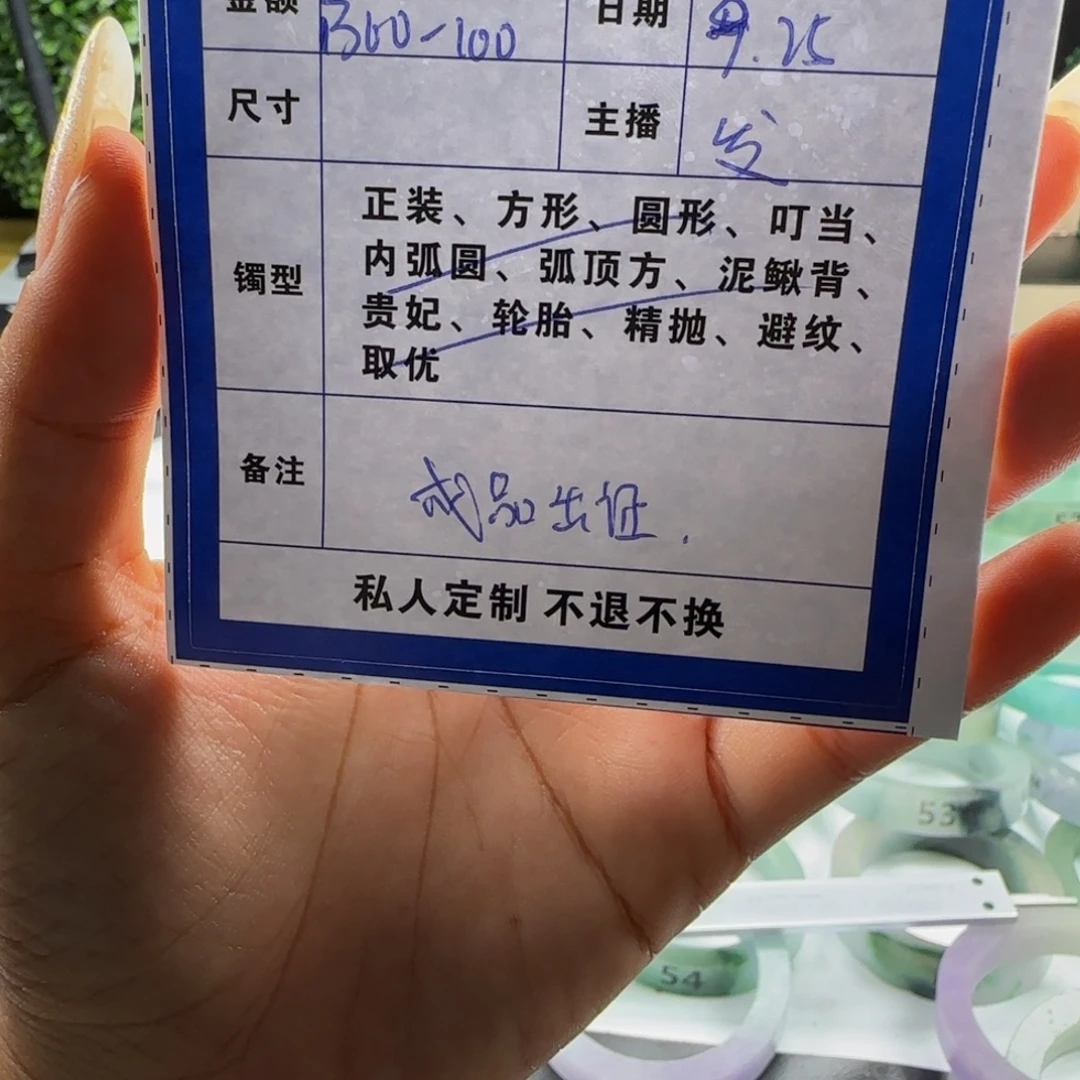 金额 1300-100 日期 9.25
尺寸 主播 发
镯型 正装、方形、圆形、叮当、
内弧圆、弧顶方、泥鳅背、
贵妃、轮胎、精抛、避纹、
取优
备注 成品出证.
私人定制 不退不换
53
54